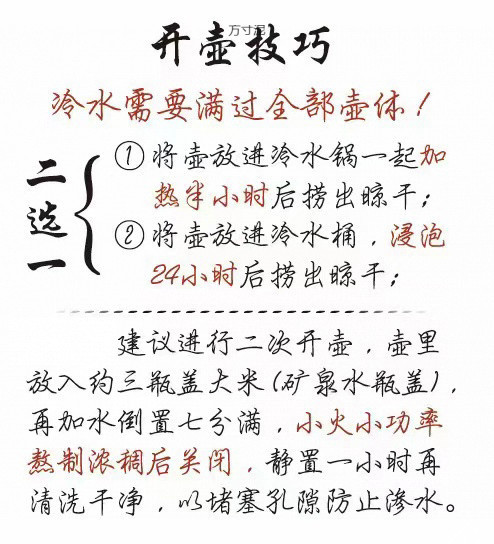 万寸泥
开壶技巧
冷水需要满过全部壶体！
二选一
①将壶放进冷水锅一起加
热半小时后捞出晾干；
②将壶放进冷水桶，浸泡
24小时后捞出晾干；
建议进行二次开壶，壶里
放入约三瓶盖大米(矿泉水瓶盖)，
再加水倒置七分满，小火小功率
熬制浓稠后关闭，静置一小时再
清洗干净，以堵塞孔隙防止渗水。